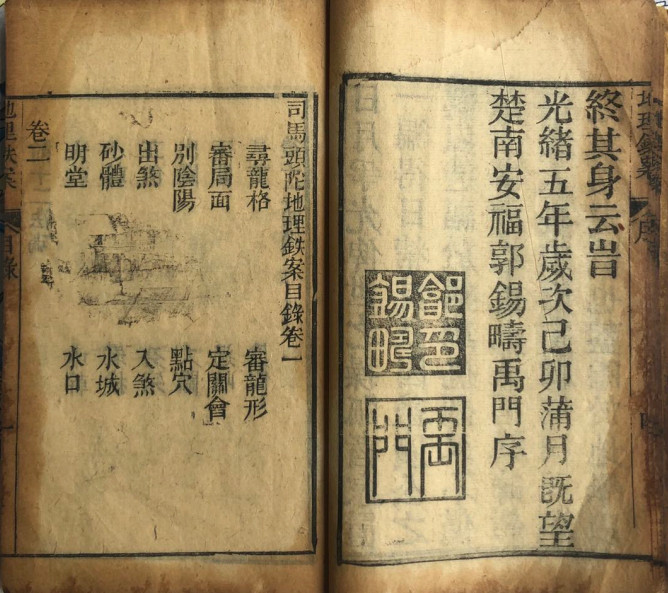 地理鉄案 序
終其身云旹
光緒五年歲次己卯蒲月既望
楚南安福郭錫疇禹門序
錫疇
禹門
司馬頭陀地理鉄案目錄卷一
尋龍格 審龍形
審局面 定關會
別陰陽 點穴
出煞 入煞
砂體 水城
明堂 水口
卷二
地理鉄案 目錄